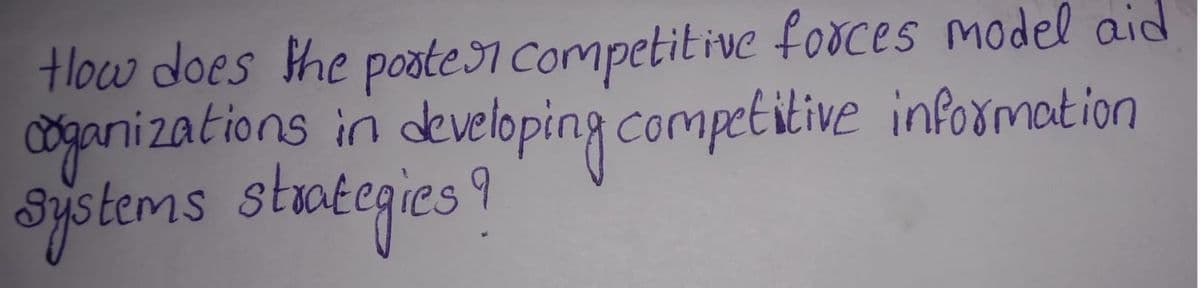 How does the porter competitive forces model aid
organizations in developing competitive information
systems strategies?